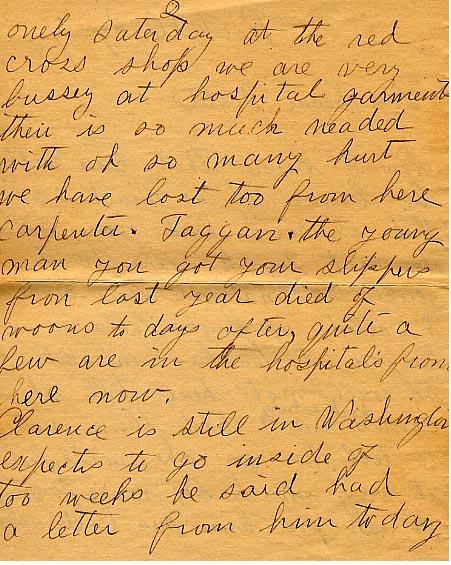 2
onely saterday at the red
cross shop we are very
bussey at hospital garment
their is so much neaded
with oh so many hurt
we have lost too from here
carpenter. Taggan. the young
man you got your slippers
from last year died of
woons to days after, quite a
few are in the hospitals from
here now.
Clarence is still in Washington
expects to go inside of
too weeks he said had
a letter from him to day